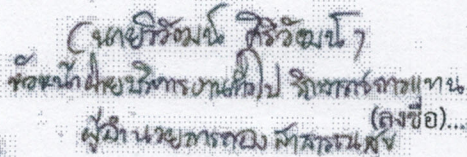 (นายวิวัฒน์ ศิริวัฒน์)
หัวหน้าฝ่ายบริหารงานทั่วไป รักษาราชการแทน
(ลงชื่อ)...
ผู้อำนวยการกองสาธารณสุข